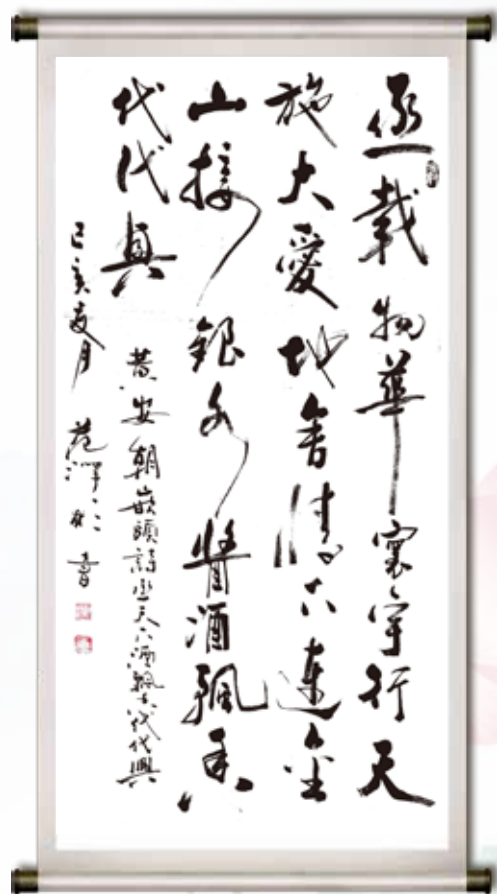 載物華寰宇行天
施大愛地含情六連金
山接銀水醬酒飄香
代代興
黄安朝嵌頭詩天六酒飄香代代興
己亥夏月 范澤書